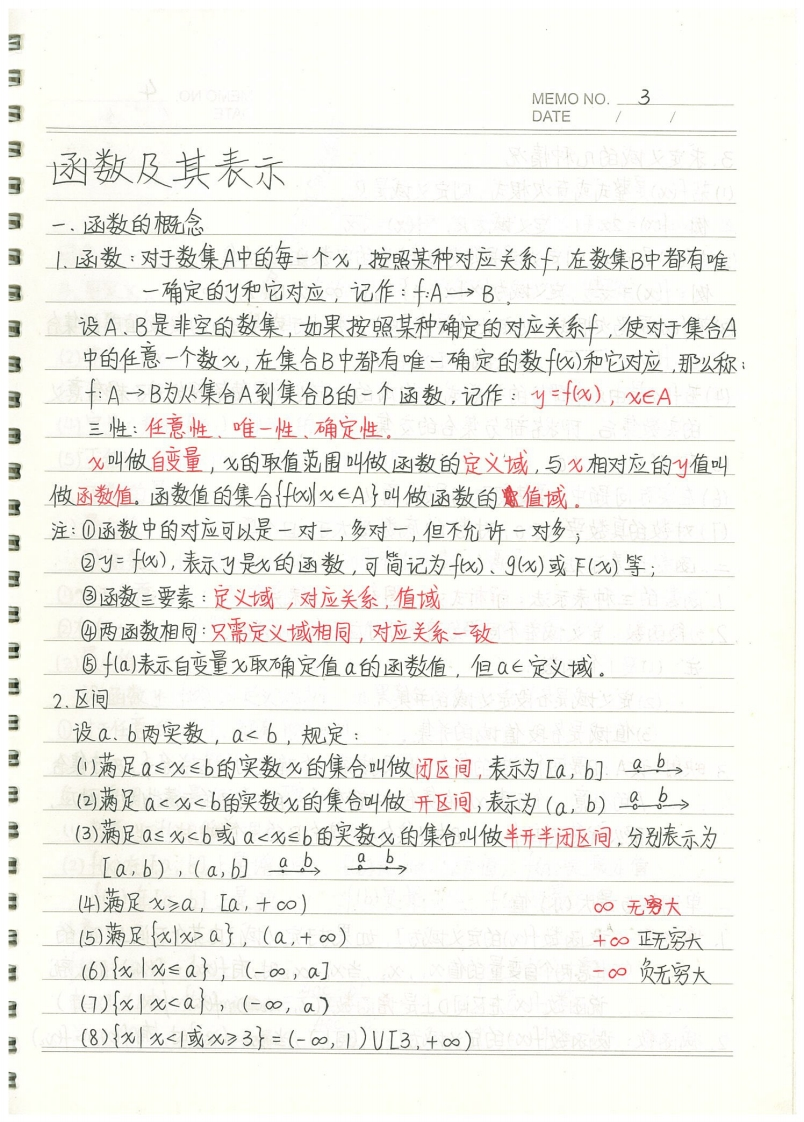 MEMO NO. 3
DATE / /
函数及其表示
一.函数的概念
1.函数:对于数集A中的每一个x,按照某种对应关系f,在数集B中都有唯
一确定的y和它对应,记作:f:A→B。
设A、B是非空的数集,如果按照某种确定的对应关系f,使对于集合A
中的任意一个数x,在集合B中都有唯一确定的数f(x)和它对应,那么称:
f:A→B为从集合A到集合B的一个函数,记作: y=f(x),x∈A
三性:任意性、唯一性、确定性。
x叫做自变量,x的取值范围叫做函数的定义域,与x相对应的y值叫
做函数值。函数值的集合{f(x)|x∈A}叫做函数的值域。
注:①函数中的对应可以是一对一,多对一,但不允许一对多;
②y=f(x),表示y是x的函数,可简记为f(x)、g(x)或F(x)等;
③函数三要素:定义域,对应关系,值域
④两函数相同:只需定义域相同,对应关系一致
⑤f(a)表示自变量x取确定值a的函数值,但a∈定义域。
2.区间
设a、b两实数,a<b,规定:
(1)满足a≤x≤b的实数x的集合叫做闭区间,表示为[a,b] a b
(2)满足a<x<b的实数x的集合叫做开区间,表示为(a,b) a b
(3)满足a≤x<b或a<x≤b的实数x的集合叫做半开半闭区间,分别表示为
[a,b),(a,b] a b a b
(4)满足x≥a,[a,+∞) ∞ 无穷大
(5)满足{x|x>a},(a,+∞) +∞ 正无穷大
(6){x|x≤a},(-∞,a] -∞ 负无穷大
(7){x|x<a},(-∞,a)
(8){x|x<1或x≥3}=(-∞,1)∪[3,+∞)